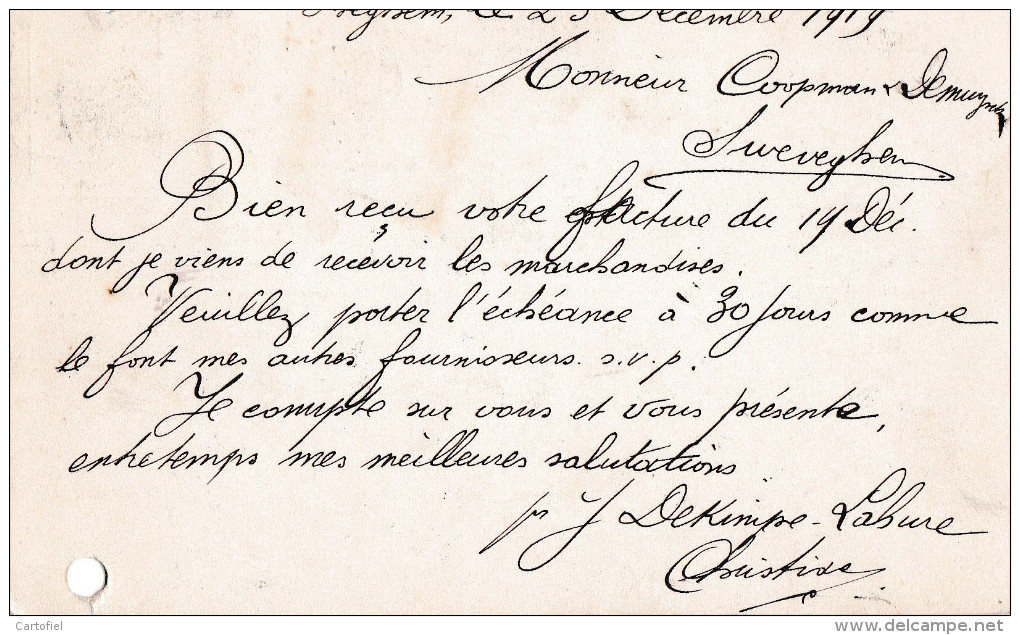 Iseghem, le 23 Décembre 1919
Monsieur Coopman & Demuynck
Sweveghem
Bien reçu votre facture du 19 Déc.
dont je viens de recevoir les marchandises.
Veuillez porter l'échéance à 30 jours comme
le font mes autres fournisseurs. s.v.p.
Je compte sur vous et vous présente,
entretemps mes meilleures salutations
pr J DeKimpe-Lahure
Christine
Cartofiel
delcampe.net